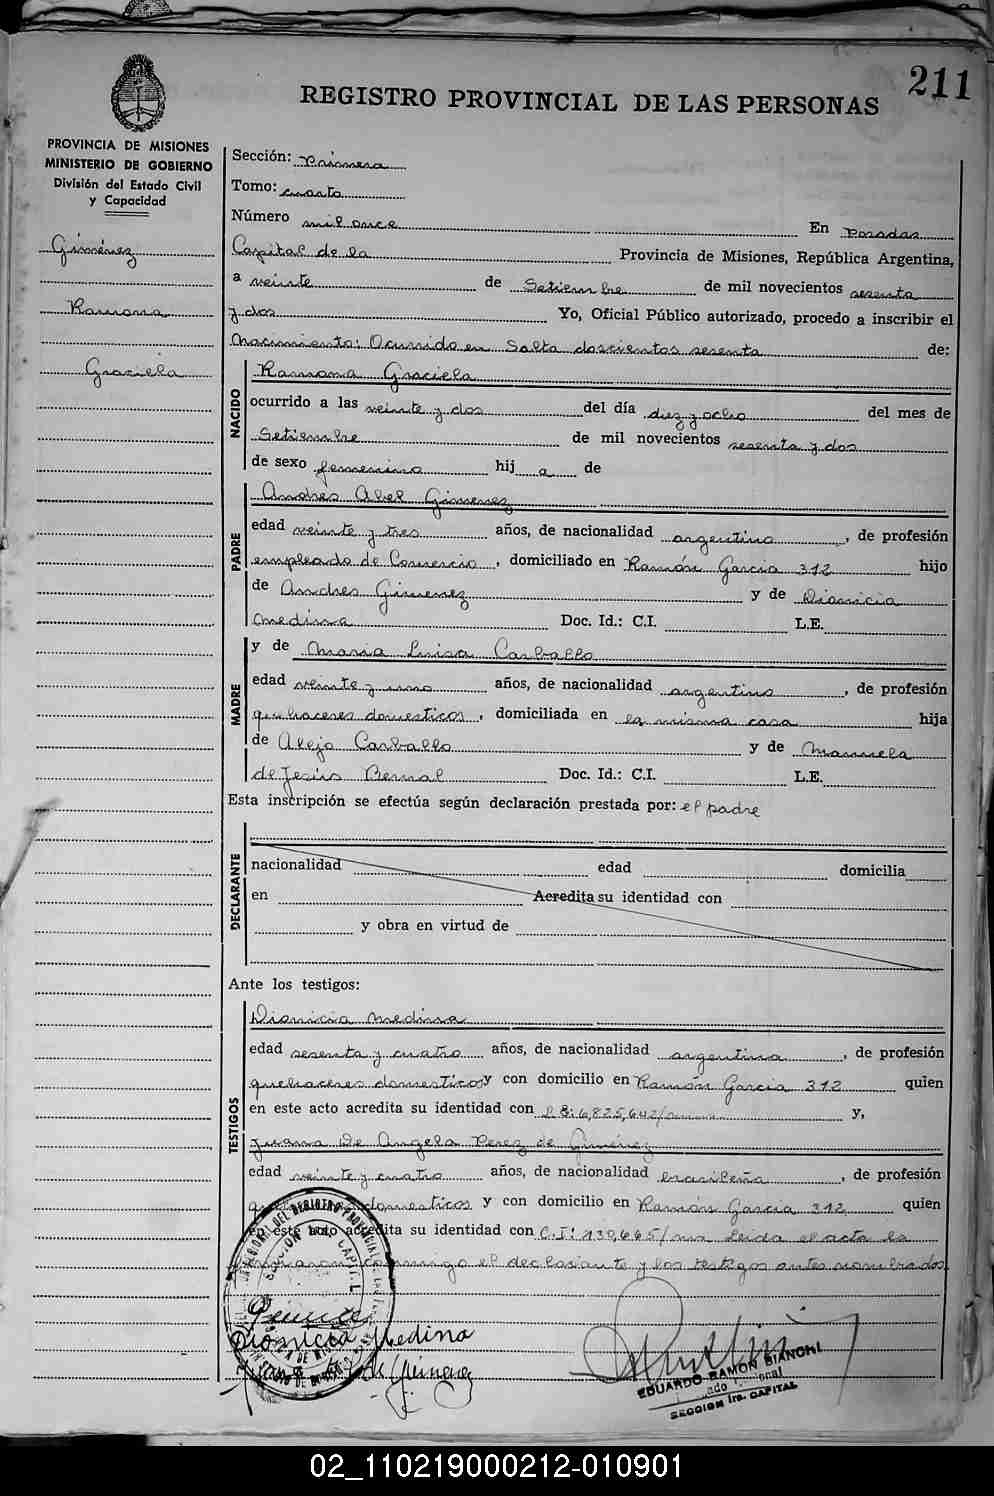 211
REGISTRO PROVINCIAL DE LAS PERSONAS
PROVINCIA DE MISIONES
MINISTERIO DE GOBIERNO
División del Estado Civil
y Capacidad
Giménez
Ramona
Graciela
Sección: Primera
Tomo: cuarto
Número mil once En Posadas
Capital de la Provincia de Misiones, República Argentina,
a veinte de Setiembre de mil novecientos sesenta
y dos Yo, Oficial Público autorizado, procedo a inscribir el
Nacimiento: Ocurrido en Salta doscientos sesenta de:
NACIDO
Ramona Graciela
ocurrido a las veinte y dos del día diez y ocho del mes de
Setiembre de mil novecientos sesenta y dos
de sexo femenino hij a de
PADRE
Andres Abel Gimenez
edad veinte y tres años, de nacionalidad argentino, de profesión
empleado de Comercio, domiciliado en Ramón Garcia 312 hijo
de Andres Gimenez y de Dionicia
Medina Doc. Id.: C.I. L.E.
MADRE
y de Maria Luisa Carballo
edad veinte y uno años, de nacionalidad argentina, de profesión
quehaceres domesticos, domiciliada en la misma casa hija
de Alejo Carballo y de Manuela
de Jesús Bernal Doc. Id.: C.I. L.E.
Esta inscripción se efectúa según declaración prestada por: el padre
DECLARANTE
nacionalidad edad domicilia
en Acredita su identidad con
y obra en virtud de
Ante los testigos:
TESTIGOS
Dionicia Medina
edad sesenta y cuatro años, de nacionalidad argentina, de profesión
quehaceres domesticos y con domicilio en Ramón Garcia 312 quien
en este acto acredita su identidad con 6,825,642/ y,
Juana De Angela Perez de Giménez
edad veinte y cuatro años, de nacionalidad brasileña, de profesión
domesticos y con domicilio en Ramón Garcia 312 quien
en este acto acredita su identidad con C.I: 130,665/ Leida el acta la
el declarante y los testigos antes nombrados
Dionicia Medina
EDUARDO RAMON BIANCHI
SECCION 1ra. CAPITAL
02_110219000212-010901